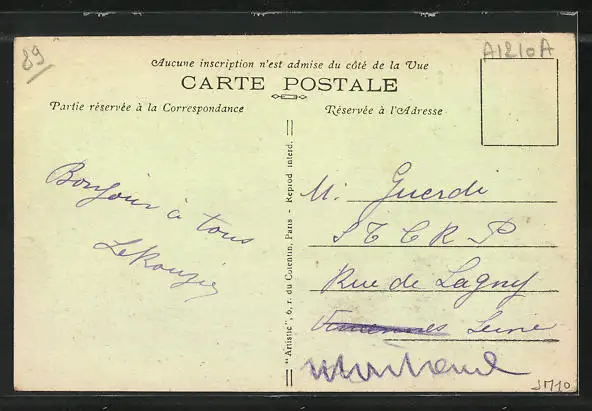 89
A1210A
Aucune inscription n'est admise du côté de la Vue
CARTE POSTALE
Partie réservée à la Correspondance
Réservée à l'Adresse
Bonjour à tous
LeRouzic
"Artistic", 6, r. du Cotentin, Paris - Reprod interd.
M. Guerdi
S T C R P
Rue de Lagny
Vincennes Seine
JM10